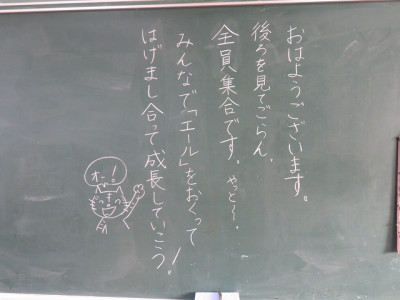 おはようございます。
後ろを見てごらん、
全員集合です。やっと〜。
みんなで「エール」をおくって
はげまし合って成長していこう!
オー!